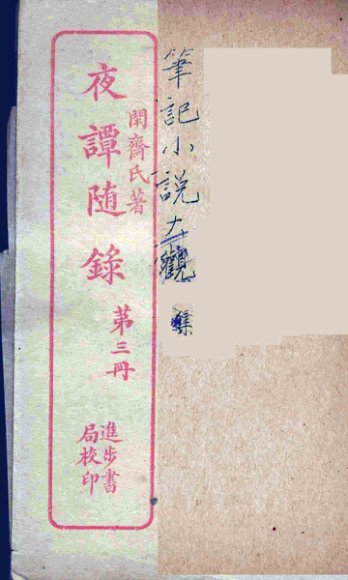 筆記小説大觀
閑齋氏著
夜譚随錄
第三冊
進步書
局校印